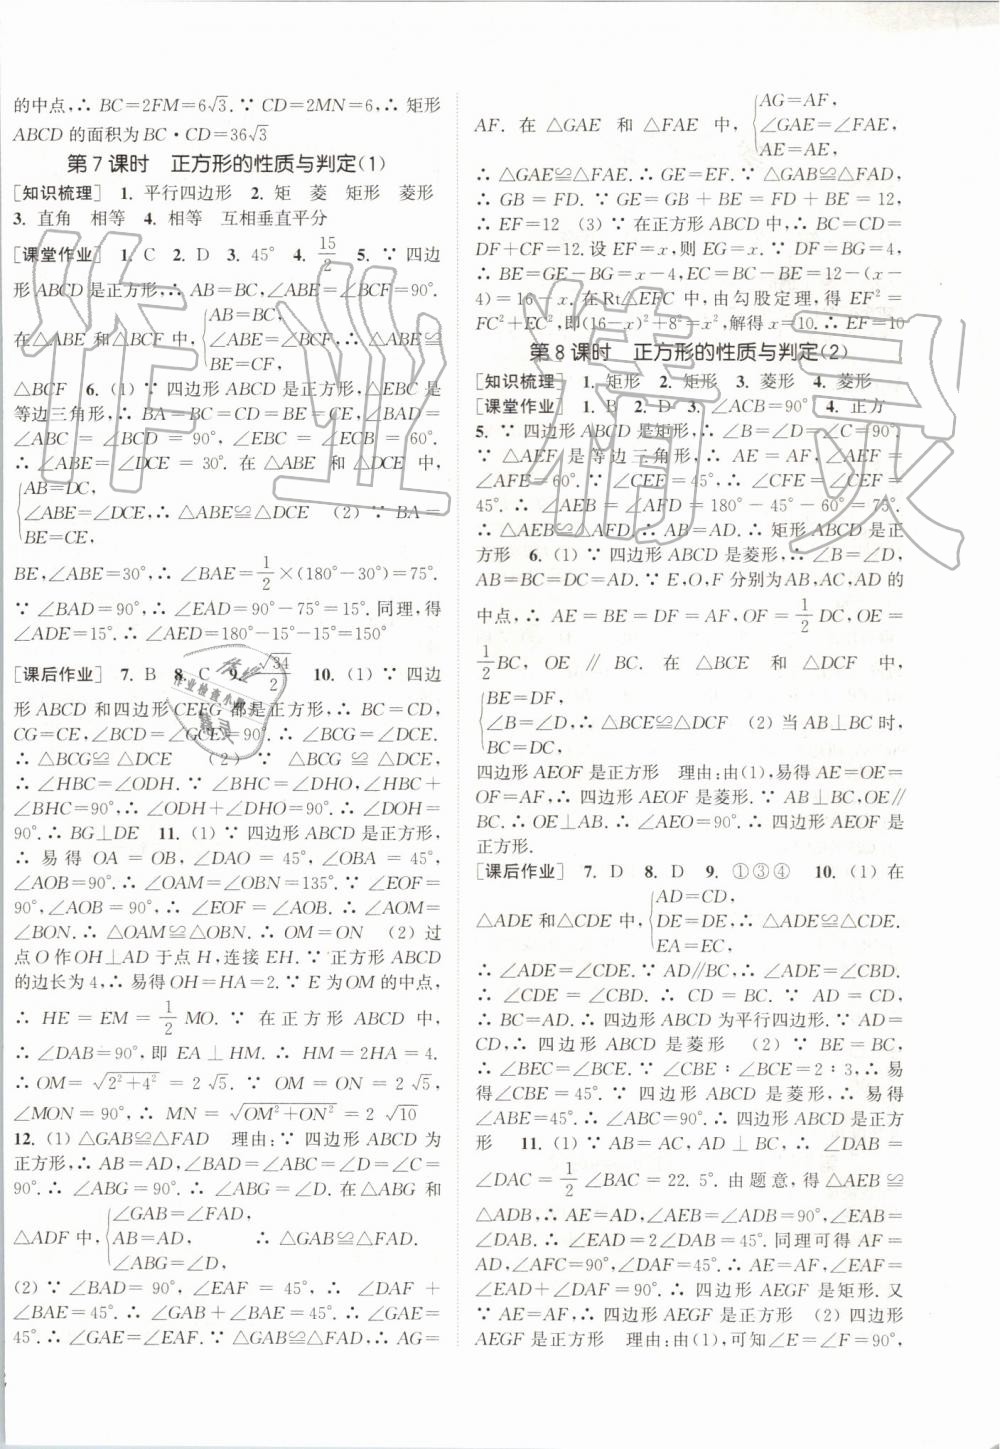 的中点,∴ BC=2FM=6√3.∵ CD=2MN=6,∴ 矩形
ABCD 的面积为 BC·CD=36√3
第 7 课时　正方形的性质与判定(1)
[知识梳理]　1. 平行四边形　2. 矩　菱　矩形　菱形
3. 直角　相等　4. 相等　互相垂直平分
[课堂作业]　1. C　2. D　3. 45°　4. 15/2　5. ∵ 四边
形 ABCD 是正方形,∴ AB=BC,∠ABE=∠BCF=90°.
在△ABE 和△BCF 中,{AB=BC, ∠ABE=∠BCF, ∴ △ABE≌
△BCF　6. (1) ∵ 四边形 ABCD 是正方形,△EBC 是
等边三角形,∴ BA=BC=CD=BE=CE,∠BAD=
∠ABC = ∠BCD = 90°,∠EBC = ∠ECB = 60°.
∴ ∠ABE=∠DCE = 30°. 在 △ABE 和 △DCE 中,
{AB=DC,
∠ABE=∠DCE,∴ △ABE≌△DCE　(2) ∵ BA=
BE=CE,
BE,∠ABE=30°,∴ ∠BAE=1/2×(180°-30°)=75°.
∵ ∠BAD=90°,∴ ∠EAD=90°-75°=15°.同理,得
∠ADE=15°.∴ ∠AED=180°-15°-15°=150°
[课后作业]　7. B　8. C　9. √34/2　10. (1) ∵ 四边
形 ABCD 和四边形 CEFG 都是正方形,∴ BC=CD,
CG=CE,∠BCD=∠GCE=90°.∴ ∠BCG=∠DCE.
∴ △BCG≌△DCE　(2) ∵ △BCG ≌ △DCE,
∴ ∠HBC=∠ODH. ∵ ∠BHC=∠DHO,∠HBC+
∠BHC=90°,∴ ∠ODH+∠DHO=90°.∴ ∠DOH=
90°.∴ BG⊥DE　11. (1) ∵ 四边形 ABCD 是正方形,
∴ 易得 OA = OB,∠DAO = 45°,∠OBA = 45°,
∠AOB=90°.∴ ∠OAM=∠OBN=135°.∵ ∠EOF=
90°,∠AOB = 90°,∴ ∠EOF = ∠AOB. ∴ ∠AOM=
∠BON.∴ △OAM≌△OBN.∴ OM=ON　(2) 过
点 O 作 OH⊥AD 于点 H,连接 EH.∵ 正方形 ABCD
的边长为 4,∴ 易得 OH=HA=2.∵ E 为 OM 的中点,
∴ HE = EM = 1/2 MO. ∵ 在正方形 ABCD 中,
∴ ∠DAB=90°,即 EA⊥HM.∴ HM=2HA=4.
∴ OM= √(2²+4²) = 2√5. ∵ OM = ON = 2√5,
∠MON=90°,∴ MN= √(OM²+ON²)=2√10
12. (1) △GAB≌△FAD　理由:∵ 四边形 ABCD 为
正方形,∴ AB=AD,∠BAD=∠ABC=∠D=∠C=
90°.∴ ∠ABG = 90°. ∴ ∠ABG=∠D. 在△GAB 和
△ADF 中,{∠GAB=∠FAD, AB=AD, ∠ABG=∠D, ∴ △GAB≌△FAD.
(2) ∵ ∠BAD = 90°,∠EAF = 45°,∴ ∠DAF +
∠BAE=45°.∴ ∠GAB+∠BAE=45°.∴ ∠GAE=
45°.∴ ∠GAE=∠EAF.∵ △GAB≌△FAD,∴ AG=
AF. 在 △GAE 和 △FAE 中,{AG=AF, ∠GAE=∠FAE, AE=AE,
∴ △GAE≌△FAE.∴ GE=EF.∵ △GAB≌△FAD,
∴ GB = FD. ∴ EF = GE=GB + BE = FD + BE = 12,
∴ EF=12　(3) ∵ 在正方形 ABCD 中,∴ BC=CD=
DF+CF=12.设 EF=x,则 EG=x.∵ DF=BG=4,
∴ BE=GE-BG=x-4,EC=BC-BE=12-(x-
4)=16-x.在Rt△EFC 中,由勾股定理,得 EF²=
FC²+EC²,即(16-x)²+8²=x²,解得 x=10.∴ EF=10
第 8 课时　正方形的性质与判定(2)
[知识梳理]　1. 矩形　2. 矩形　3. 菱形　4. 菱形
[课堂作业]　1. B　2. D　3. ∠ACB=90°　4. 正方
5. ∵ 四边形 ABCD 是矩形,∴ ∠B=∠D=∠C=90°.
∵ △AEF 是等边三角形,∴ AE = AF,∠AEF=
∠AFE=60°.∵ ∠CEF=45°,∴ ∠CFE = ∠CEF =
45°.∴ ∠AEB = ∠AFD = 180° - 45° - 60° = 75°.
∴ △AEB≌△AFD.∴ AB=AD.∴ 矩形 ABCD 是正
方形　6. (1) ∵ 四边形 ABCD 是菱形,∴ ∠B=∠D,
AB=BC=DC=AD.∵ E,O,F 分别为 AB,AC,AD 的
中点,∴ AE = BE = DF = AF,OF = 1/2 DC,OE =
1/2 BC,OE ∥ BC. 在 △BCE 和 △DCF 中,
{BE=DF,
∠B=∠D,∴ △BCE≌△DCF　(2) 当 AB⊥BC 时,
BC=DC,
四边形 AEOF 是正方形　理由:由(1),易得 AE=OE=
OF=AF,∴ 四边形 AEOF 是菱形.∵ AB⊥BC,OE∥
BC.∴ OE⊥AB.∴ ∠AEO=90°.∴ 四边形 AEOF 是
正方形.
[课后作业]　7. D　8. D　9. ①③④　10. (1) 在
△ADE 和△CDE 中,{AD=CD, DE=DE, EA=EC, ∴ △ADE≌△CDE.
∴ ∠ADE=∠CDE.∵ AD∥BC,∴ ∠ADE=∠CBD.
∴ ∠CDE = ∠CBD. ∴ CD = BC. ∵ AD = CD,
∴ BC=AD.∴ 四边形 ABCD 为平行四边形.∵ AD=
CD,∴ 四边形 ABCD 是菱形　(2) ∵ BE=BC,
∴ ∠BEC=∠BCE.∵ ∠CBE∶∠BCE=2∶3,∴ 易
得∠CBE=45°.∵ 四边形 ABCD 是菱形,∴ 易得
∠ABE=45°.∴ ∠ABC=90°.∴ 四边形 ABCD 是正方
形　11. (1) ∵ AB = AC,AD ⊥ BC,∴ ∠DAB =
∠DAC = 1/2 ∠BAC = 22. 5°. 由题意,得△AEB ≌
△ADB,∴ AE=AD,∠AEB=∠ADB=90°,∠EAB=
∠DAB.∴ ∠EAD=2∠DAB=45°.同理可得 AF=
AD,∠AFC=90°,∠DAF=45°.∴ AE=AF,∠EAF=
∠EAD+∠DAF=90°.∴ 四边形 AEGF 是矩形. 又
∵ AE=AF,∴ 四边形 AEGF 是正方形　(2) 四边形
AEGF 是正方形　理由:由(1),可知∠E=∠F=90°,
作业精灵
作业检查小